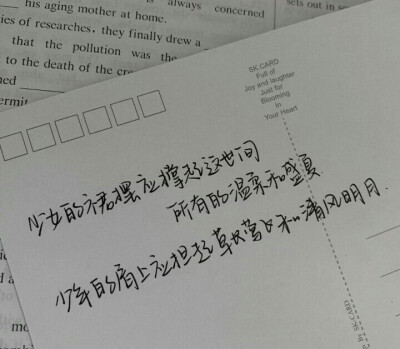 his aging mother at home.
always concerned
ies of researches, they finally drew a
sets out in
that the pollution was the
to the death of the
SK CARD
Full of
Joy and laughter
Just for
Blooming
In
Your Heart
少女的裙摆应撑起这世间
所有的温柔和盛夏
少年的肩上应担起草长莺飞和清风明月.
BY SK-CARD